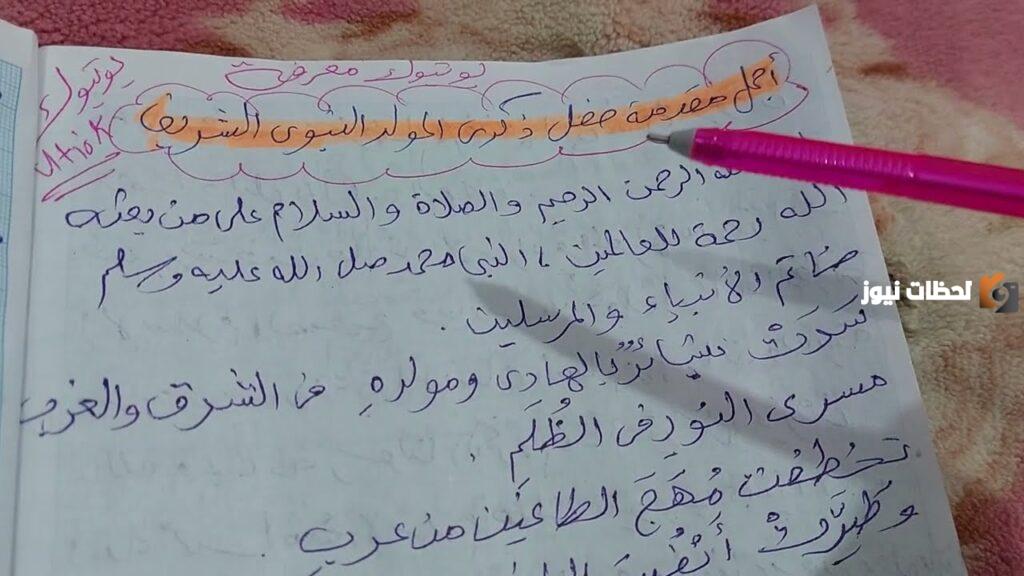 يوتيوك معرفة
يوتيوك
utiok
أجمل مقدمة حفل ذكرى المولد النبوى الشريف
الله الرحمن الرحيم والصلاة والسلام على من بعثه
الله رحمة للعالمين، النبى محمد صل الله عليه وسلم
خاتم الأنبياء والمرسلين.
سَرَتْ بشائرُ بالهادِى ومولدهِ فى الشرق والغرب
مسرى النور فى الظُلَمِ.
تخطفت مُهَجَ الطاغين من عرب
وطيرت أنفس
لحظات نيوز